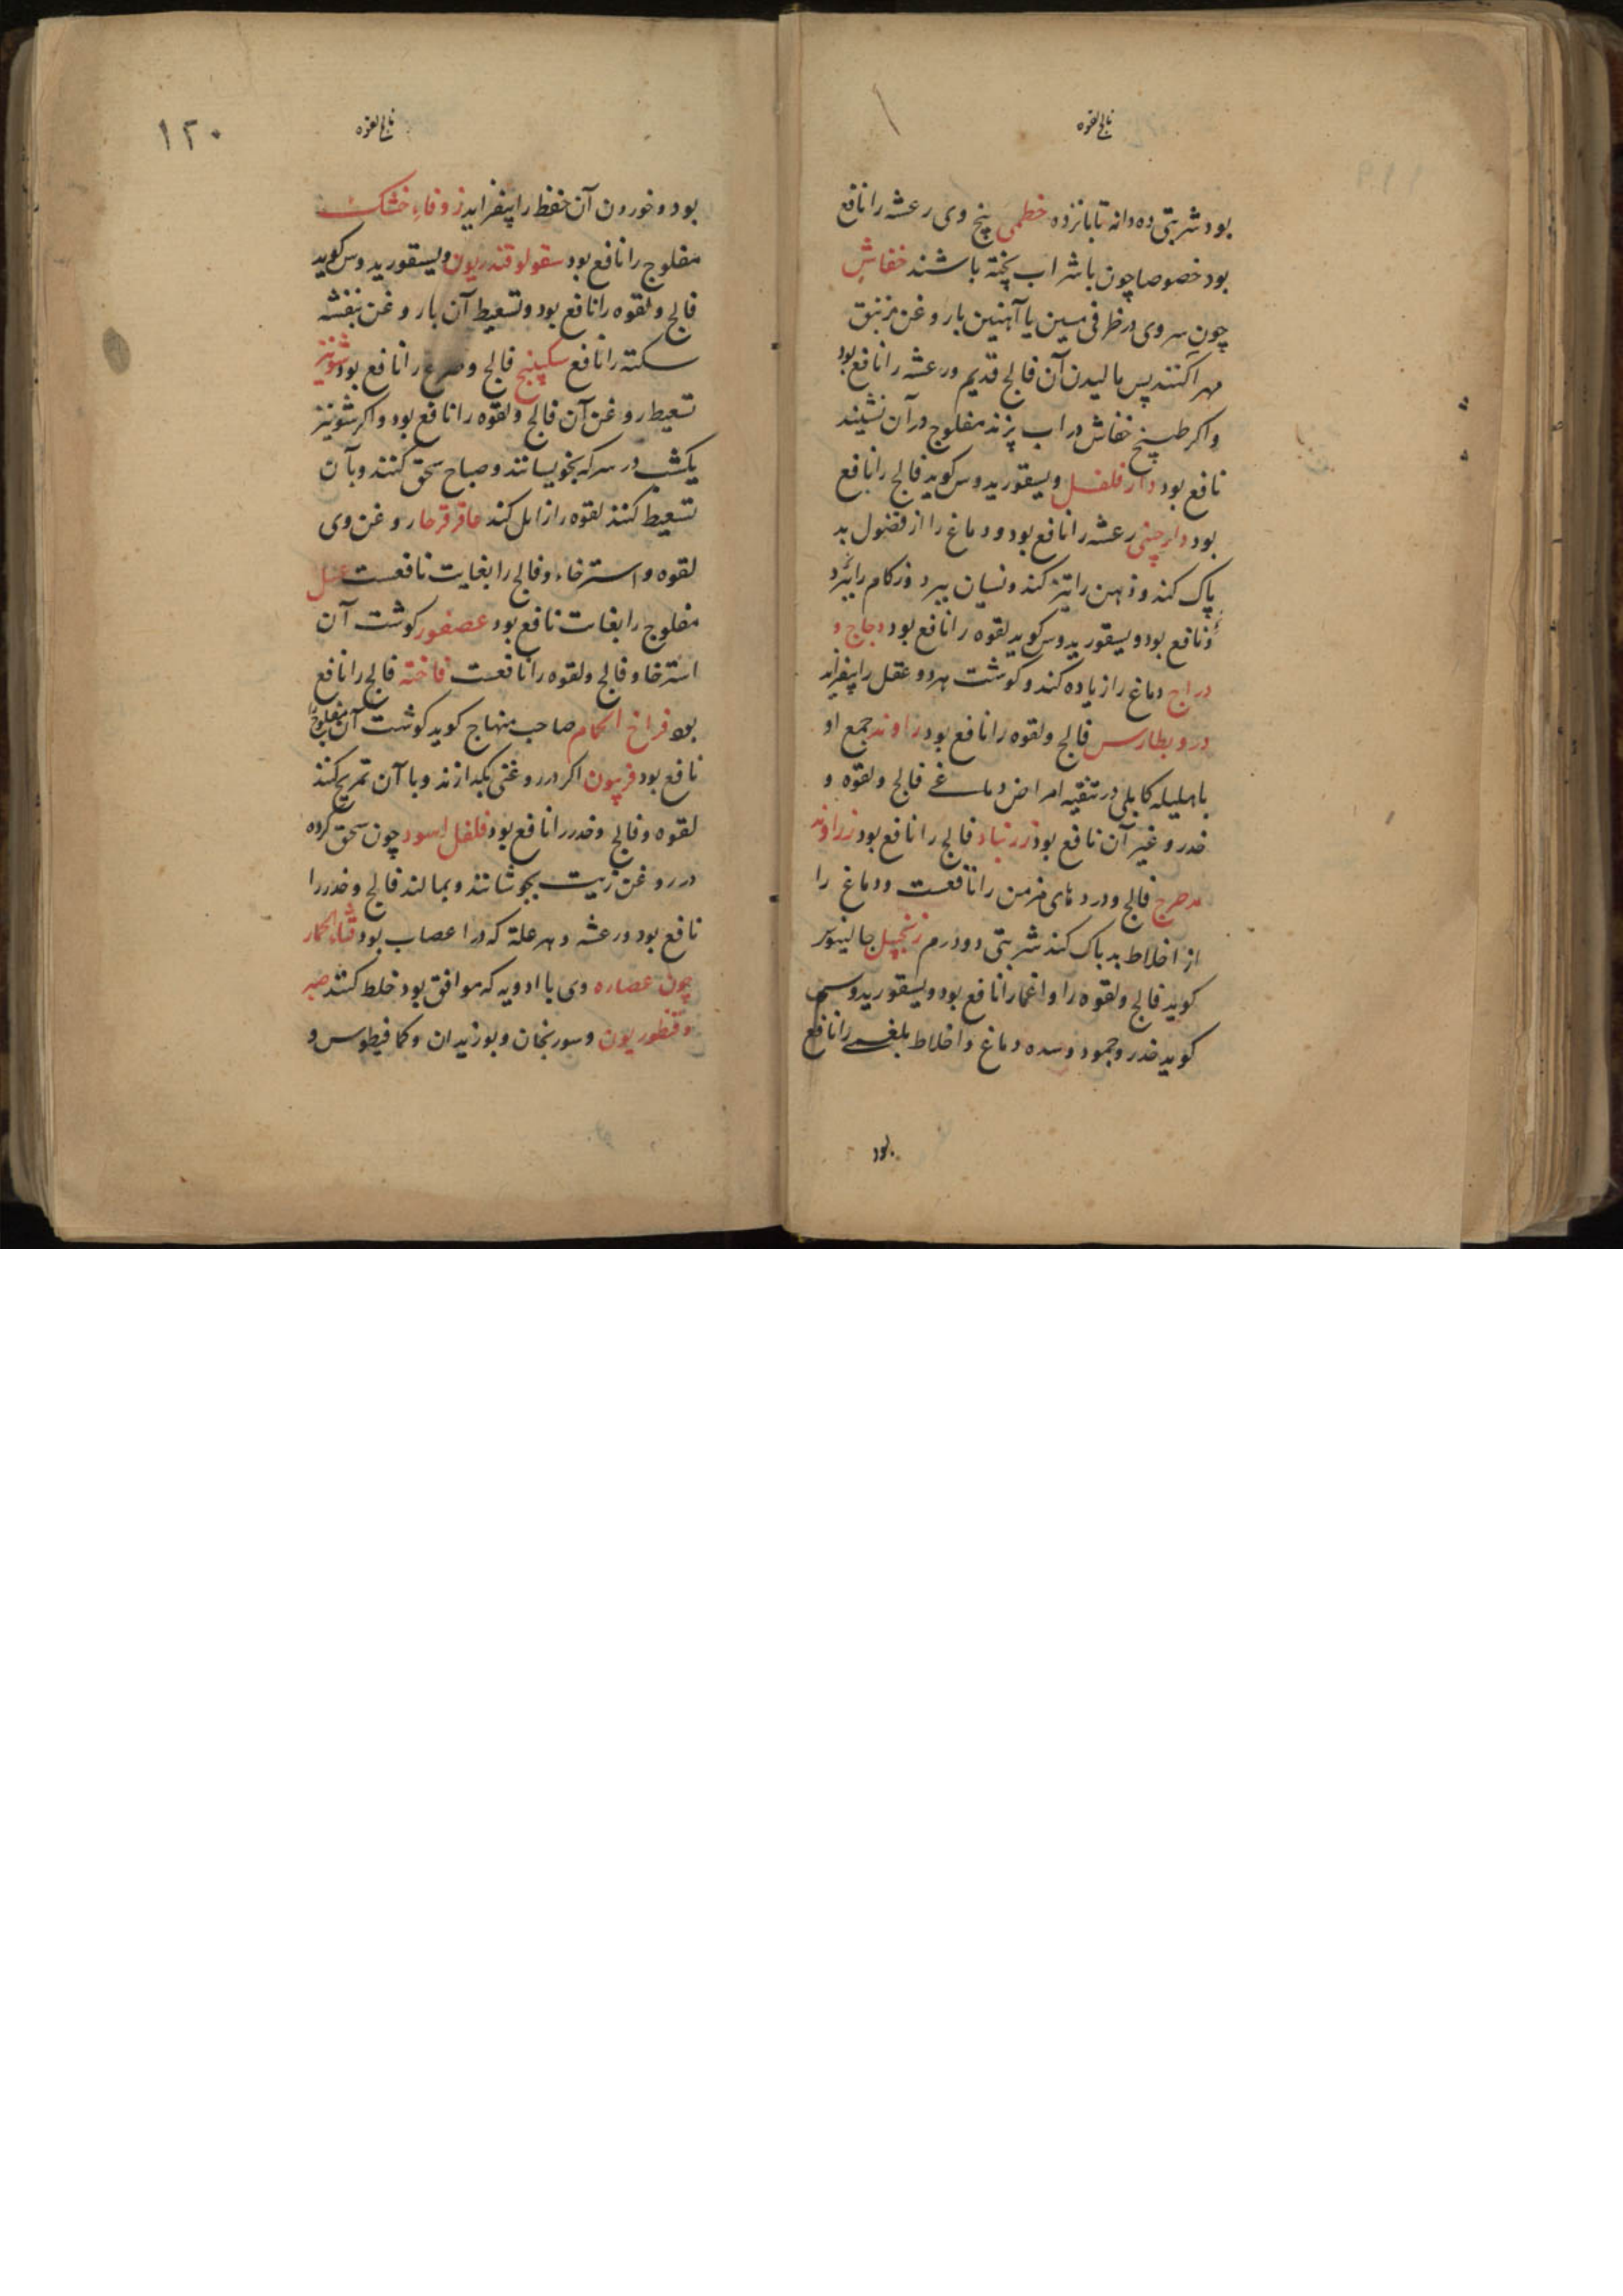 فالج لقوه
بود شربتی ده دانه تا پانزده خطمی پنج وی رعشه را نافع
بود خصوصا چون با شراب پخته باشند خفاش
چون سر وی در ظرفی مسین یا آهنین با روغن زنبق
مهرا کنند پس مالیدن آن فالج قدیم و رعشه را نافع بود
و اکر طبیخ خفاش در اب پزند مفلوج در آن نشیند
نافع بود دار فلفل دیسقوریدوس کوید فالج را نافع
بود دارچینی رعشه را نافع بود و دماغ را از فضول بد
پاک کند و ذهن را تیز کند و نسیان ببرد و زکام را ببرد
و نافع بود و دیسقوریدوس کوید لقوه را نافع بود دجاج و
دراج دماغ را زیاده کند و کوشت هر دو عقل را بیفزاید
دروبطارس فالج و لقوه را نافع بود راوند جمع او
با هلیله کابلی در تنقیه امراض دماغی فالج و لقوه و
خدر و غیر آن نافع بود زرنباد فالج را نافع بود زراوند
مدحرج فالج و دردهای مزمن را نافعست و دماغ را
از اخلاط بد پاک کند شربتی دو درم زنجبیل جالینوس
کوید فالج و لقوه را و اغما را نافع بود و دیسقوریدوس
کوید خدر و جمود و سده دماغ و اخلاط بلغمی را نافع
بود
فالج لقوه
۱۲۰
بود و خوردن آن حفظ را بیفزاید زوفاء خشک
مفلوج را نافع بود سقولوقندریون دیسقوریدوس کوید
فالج و لقوه را نافع بود و تسعیط آن با روغن بنفشه
سکته را نافع سکبینج فالج و صرع را نافع بود شونیز
تسعیط روغن آن فالج و لقوه را نافع بود و اکر شونیز
یکشب در سرکه بخویسانند و صباح سحق کنند و بآن
تسعیط کنند لقوه را زایل کند عاقرقرحا روغن وی
لقوه و استرخاء و فالج را بغایت نافعست عسل
مفلوج را بغایت نافع بود عصفور کوشت آن
استرخا و فالج و لقوه را نافعست فاخته فالج را نافع
بود فراخ الحمام صاحب منهاج کوید کوشت آن مفلوج را
نافع بود فربیون اکر در روغنی بکدازند و با آن تمریخ کنند
لقوه و فالج و خدر را نافع بود فلفل اسود چون سحق کرده
در روغن زیت بجوشانند و بمالند فالج و خدر را
نافع بود و رعشه و هر علة که در اعصاب بود قثاء الحمار
چون عصاره وی با ادویه که موافق بود خلط کنند صبر
و قنطوریون و سورنجان و بوزیدان و کمافیطوس و